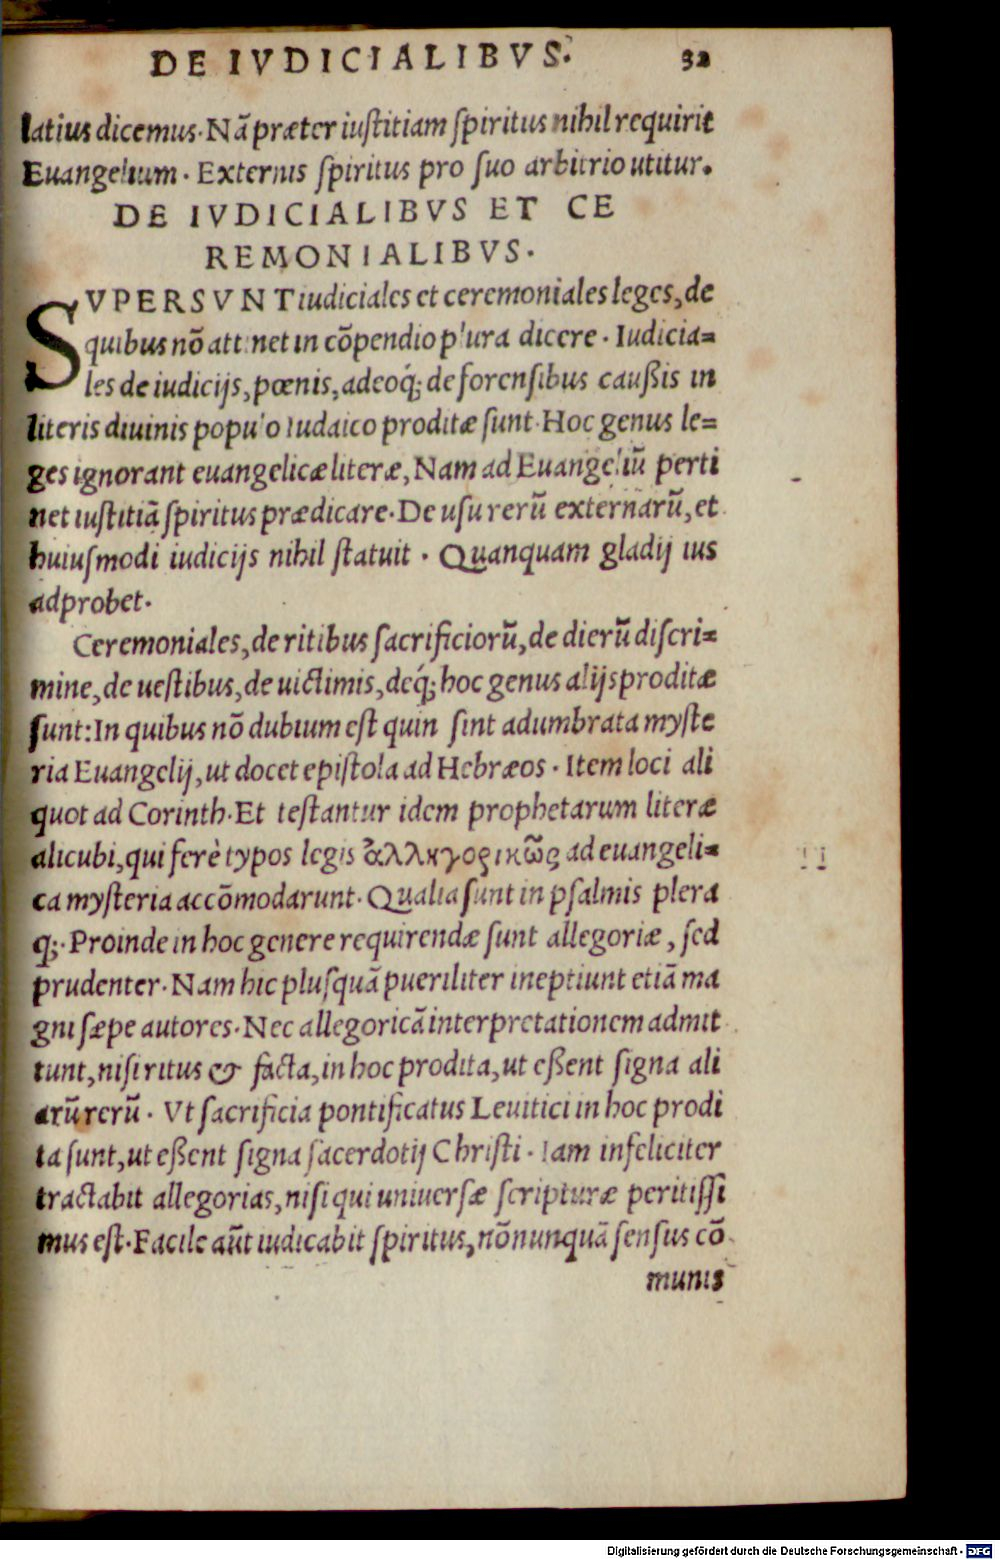 DE IVDICIALIBVS. 32
latius dicemus. Nã præter iuſtitiam ſpiritus nihil requirit
Euangelium. Externis ſpiritus pro ſuo arbitrio utitur.
DE IVDICIALIBVS ET CE
REMONIALIBVS.
SVPERSVNT iudiciales et ceremoniales leges, de
quibus nõ attinet in cõpendio plura dicere. Iudicia=
les de iudicijs, pœnis, adeoq́; de forenſibus cauſsis in
literis diuinis populo Iudaico proditæ ſunt. Hoc genus le=
ges ignorant euangelicæ literæ, Nam ad Euangeliũ perti
net iuſtitiã ſpiritus prædicare. De uſu rerũ externarũ, et
huiuſmodi iudicijs nihil ſtatuit. Quanquam gladij ius
adprobet.
Ceremoniales, de ritibus ſacrificiorũ, de dierũ diſcri=
mine, de ueſtibus, de uictimis, deq́; hoc genus alijs proditæ
ſunt: In quibus nõ dubium eſt quin ſint adumbrata myſte
ria Euangelij, ut docet epiſtola ad Hebræos. Item loci ali
quot ad Corinth. Et teſtantur idem prophetarum literæ
alicubi, qui ferè typos legis ἀλληγορικῶς ad euangeli=
ca myſteria accõmodarunt. Qualia ſunt in pſalmis plera
q;. Proinde in hoc genere requirendæ ſunt allegoriæ, ſed
prudenter. Nam hic pluſquã pueriliter ineptiunt etiã ma
gni ſæpe autores. Nec allegoricã interpretationem admit
tunt, niſi ritus & facta, in hoc prodita, ut eſsent ſigna ali
arũ rerũ. Vt ſacrificia pontificatus Leuitici in hoc prodi
ta ſunt, ut eſsent ſigna ſacerdotij Chriſti. Iam infeliciter
tractabit allegorias, niſi qui uniuerſæ ſcripturæ peritiſſi
mus eſt. Facile aũt iudicabit ſpiritus, nõnunquã ſenſus cõ
munis
Digitalisierung gefördert durch die Deutsche Forschungsgemeinschaft - DFG